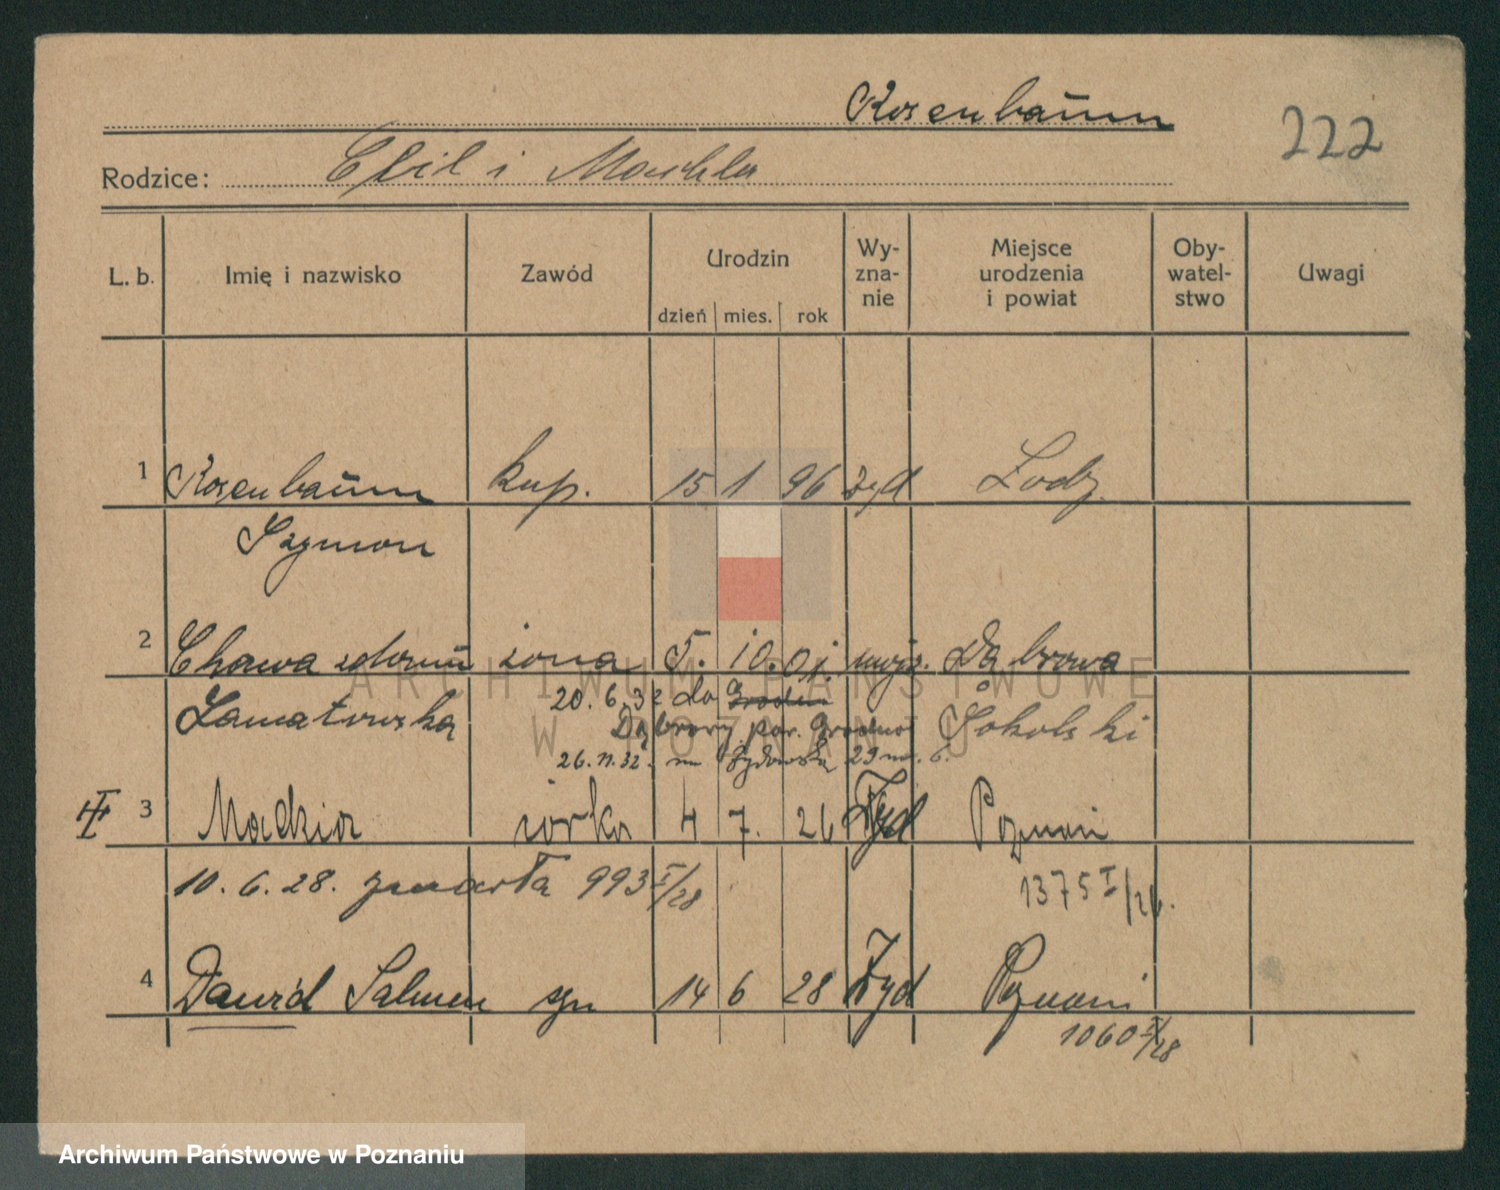 Rosenbaum
222
Rodzice: i
L. b. Imię i nazwisko Zawód Urodzin Wy-zna-nie Miejsce urodzenia i powiat Oby-watel-stwo Uwagi
dzień mies. rok
1 Rosenbaum kup. 15 1 96 żyd Łodz
Szymon
2 Chawa z domu żona 5. 10. 01. mojż. Dąbrowa
20. 6. 32 do Grodna
Dąbrowy pow. Grodno Sokolski
26. 11. 32. na Żydowską 29 m. 6.
3 Madzia córka 4 7. 26 Żyd Poznań
10. 6. 28. zmarła 993 I/28 1375 I/26.
4 Dawid Salmen syn 14 6 28 Żyd Poznań
1060 I/28
ARCHIWUM PAŃSTWOWE
W POZNANIU
Archiwum Państwowe w Poznaniu